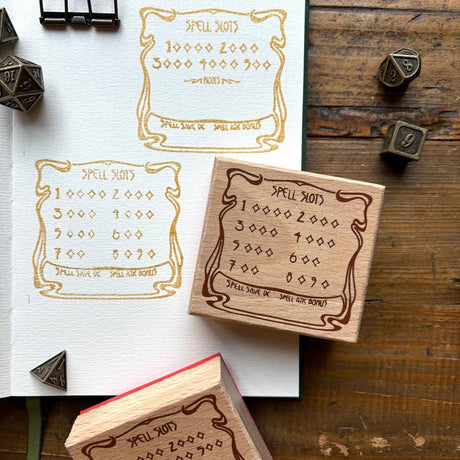 SPELL SLOTS
1 ◇◇◇◇ 2 ◇◇◇
3 ◇◇◇ 4 ◇◇◇ 5 ◇◇
NOTES
SPELL SAVE DC SPELL ATK BONUS
SPELL SLOTS
1 ◇◇◇◇ 2 ◇◇◇
3 ◇◇◇ 4 ◇◇◇
5 ◇◇◇ 6 ◇◇
7 ◇◇ 8 ◇ 9 ◇
SPELL SAVE DC SPELL ATK BONUS
SPELL SLOTS
1 ◇◇◇◇ 2 ◇◇◇
3 ◇◇◇ 4 ◇◇◇
5 ◇◇◇ 6 ◇◇
7 ◇◇ 8 ◇ 9 ◇
SPELL SAVE DC SPELL ATK BONUS
SPELL SLOTS
1 ◇◇◇◇ 2 ◇◇◇
8
6